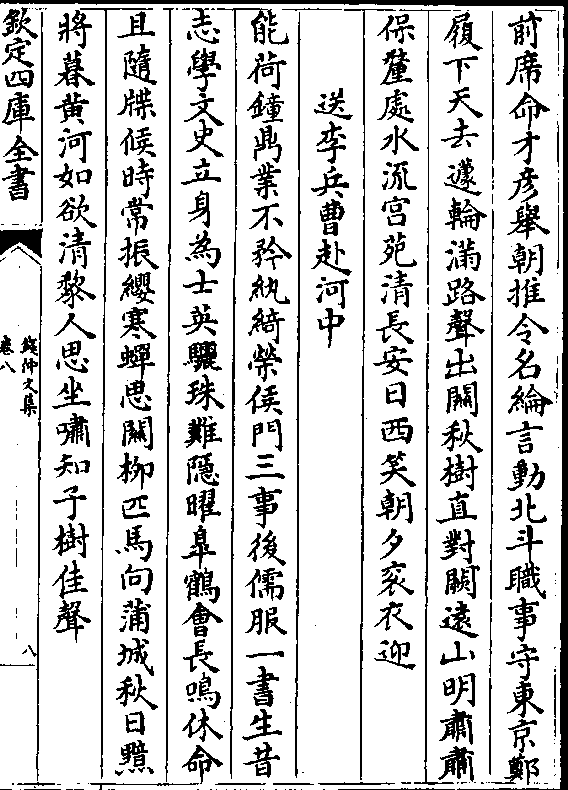 前席命才彦舉朝推令名綸言動北斗職事守東京鄭
履下天去蘧輪滿路聲出關秋樹直對闕遠山明肅肅
保釐處水流宫苑清長安日西笑朝夕衮衣迎
送李兵曹赴河中
能荷鐘鼎業不矜紈綺榮侯門三事後儒服一書生昔
志學文史立身為士英驪珠難隠曜臯鶴會長鳴休命
且隨牒候時常振纓寒蟬思關柳匹馬向蒲城秋日黯
將暮黄河如欲清黎人思坐嘯知子樹佳聲
欽定四庫全書
錢仲文集
卷八
八